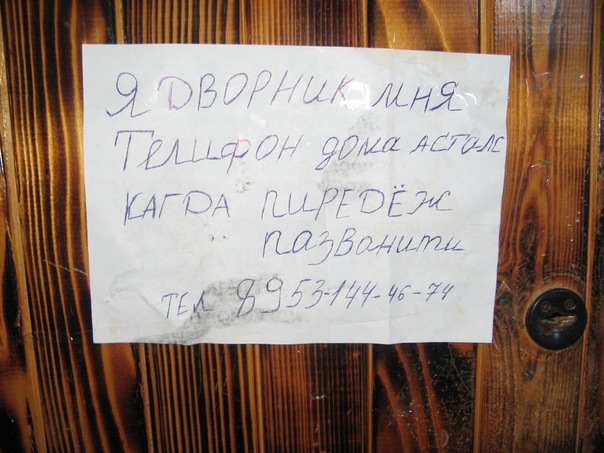 Я ДВОРНИК МНЯ
ТЕЛИФОН дома асталс
КАГДА ПИРЕДЁЖ
пазванити
ТЕЛ 8953-144-46-74